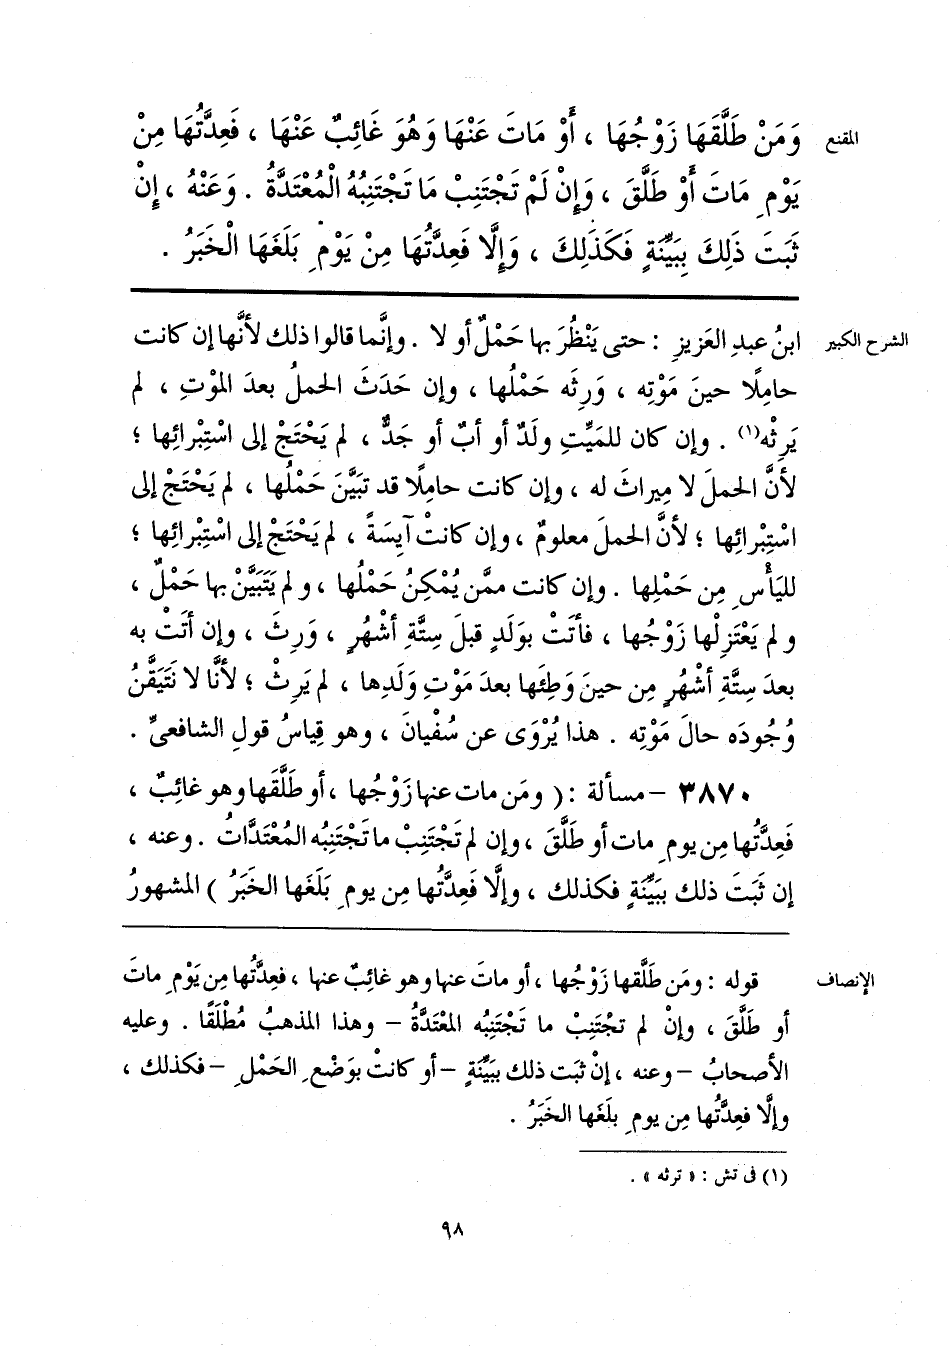 المقنع وَمَنْ طَلَّقَهَا زَوْجُهَا ، أَوْ مَاتَ عَنْهَا وَهُوَ غَائِبٌ عَنْهَا ، فَعِدَّتُهَا مِنْ
يَوْمِ مَاتَ أَوْ طَلَّقَ ، وَإِنْ لَمْ تَجْتَنِبْ مَا تَجْتَنِبُهُ الْمُعْتَدَّةُ . وَعَنْهُ ، إِنْ
ثَبَتَ ذَلِكَ بِبَيِّنَةٍ فَكَذَلِكَ ، وَإِلَّا فَعِدَّتُهَا مِنْ يَوْمِ بَلَغَهَا الْخَبَرُ .
الشرح الكبير ابنُ عبدِ العَزيزِ : حتى يَنْظُرَ بها حَمْلٌ أو لا . وإنَّما قالوا ذلك لأنَّها إن كانت
حامِلًا حينَ مَوْتِه ، وَرِثَه حَمْلُها ، وإن حَدَثَ الحملُ بعدَ المَوْتِ ، لم
يَرِثْه(١) . وإن كان للمَيِّتِ ولَدٌ أو أبٌ أو جَدٌّ ، لم يَحْتَجْ إلى اسْتِبْرائِها ؛
لأنَّ الحملَ لا مِيراثَ له ، وإن كانت حامِلًا قد تبَيَّنَ حَمْلُها ، لم يَحْتَجْ إلى
اسْتِبْرائِها ؛ لأنَّ الحملَ معلومٌ ، وإن كانتْ آيِسَةً ، لم يَحْتَجْ إلى اسْتِبْرائِها ؛
لليَأْسِ مِن حَمْلِها . وإن كانت ممَّن يُمْكِنُ حَمْلُها ، ولم يَتَبَيَّنْ بها حَمْلٌ ،
ولم يَعْتَزِلْها زَوْجُها ، فأتَتْ بوَلَدٍ قبلَ سِتَّةِ أشْهُرٍ ، وَرِثَ ، وإن أتَتْ به
بعدَ سِتَّةِ أشْهُرٍ مِن حينَ وَطِئَها بعدَ مَوْتِ وَلَدِها ، لم يَرِثْ ؛ لأنَّا لا نَتَيَقَّنُ
وُجُودَه حالَ مَوْتِه . هذا يُرْوَى عن سُفْيانَ ، وهو قِياسُ قولِ الشافعىِّ .
٣٨٧٠ - مسألة : ( ومَن مات عنها زَوْجُها ، أو طَلَّقَها وهو غائِبٌ ،
فَعِدَّتُها مِن يومِ مات أو طَلَّقَ ، وإن لم تَجْتَنِبْ ما تَجْتَنِبُه المُعْتَدَّاتُ . وعنه ،
إن ثَبَتَ ذلك ببَيِّنَةٍ فكذلك ، وإلَّا فَعِدَّتُها مِن يومِ بَلَغَها الخَبَرُ ) المشهورُ
الإنصاف قوله : ومَن طَلَّقها زَوْجُها ، أو ماتَ عنها وهو غائِبٌ عنها ، فعِدَّتُها مِن يَوْمِ ماتَ
أو طَلَّقَ ، وإنْ لم تجْتَنِبْ ما تَجْتَنِبُه المعْتَدَّةُ - وهذا المذهبُ مُطْلَقًا . وعليه
الأصحابُ - وعنه ، إنْ ثبَت ذلك ببَيِّنَةٍ - أو كانتْ بوَضْعِ الحَمْلِ - فكذلك ،
وإلَّا فعِدَّتُها مِن يومِ بلَغَها الخَبَرُ .
(١) فى تش : « ترثه » .
٩٨